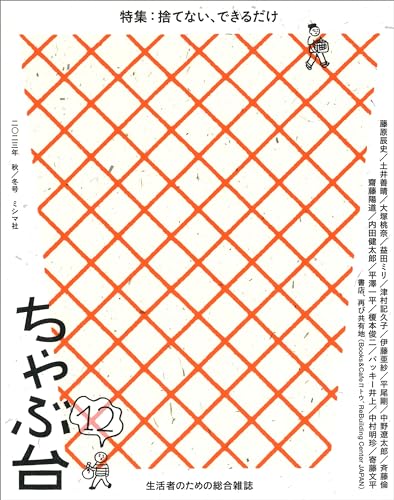 特集：捨てない、できるだけ
藤原辰史／土井善晴／大塚桃奈／益田ミリ／津村記久子／伊藤亜紗／平尾剛／中野遼太郎／斉藤倫
齋藤陽道／内田健太郎／平澤一平／榎本俊二／バッキー井上／中村明珍／寄藤文平
二〇二三年 秋／冬号 ミシマ社
ちゃぶ台
12
生活者のための総合雑誌